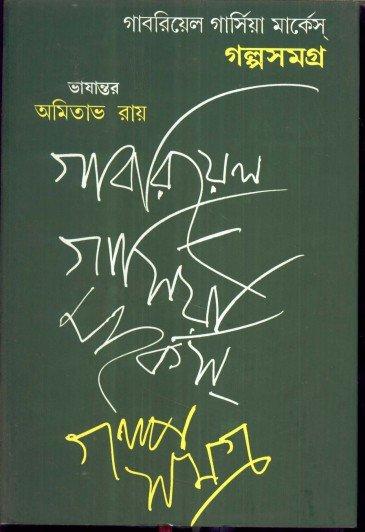 গাবরিয়েল গার্সিয়া মার্কেস্
গল্পসমগ্র
ভাষান্তর
অমিতাভ রায়
গাবরিয়েল
গার্সিয়া
মার্কেস্
গল্প
সমগ্র